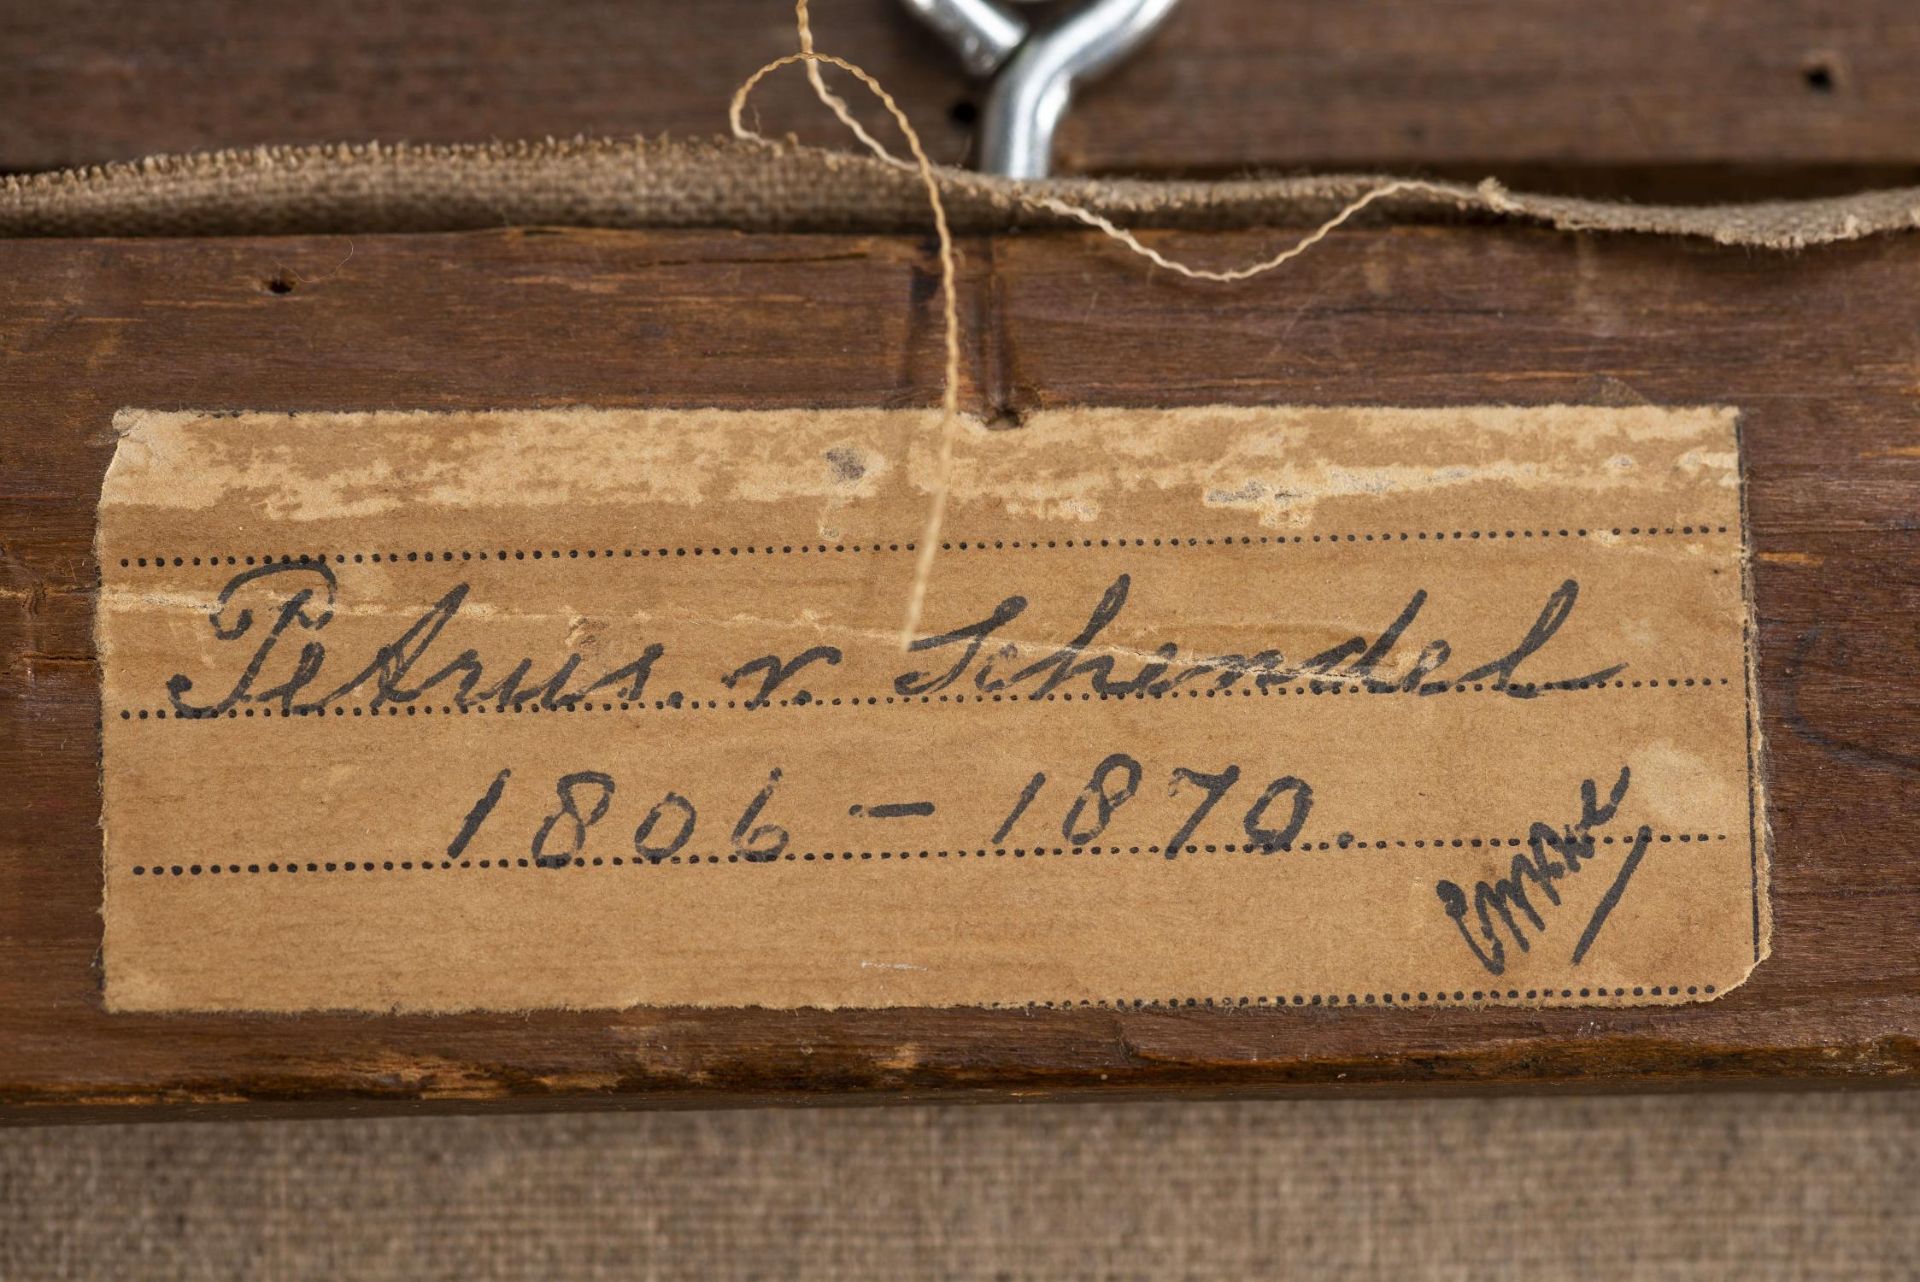 Petrus. v. Schendel
1806 – 1870.